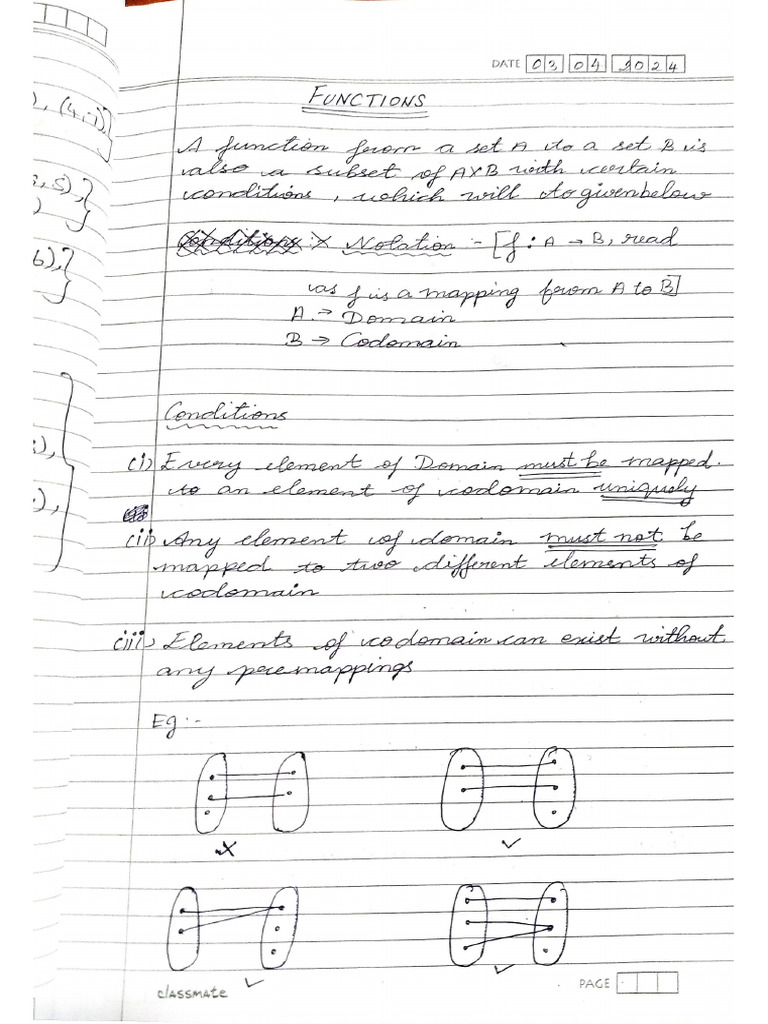 ), (4,-1)}
2,5),}
)
6),}
i),
i),
DATE 03 04 2024
FUNCTIONS
A function from a set A to a set B is
also a subset of A×B with certain
conditions, which will to given below
Conditions :- Notation :- [f : A → B, read
as f is a mapping from A to B]
A → Domain
B → Codomain
Conditions
(i) Every element of Domain must be mapped
to an element of codomain uniquely
(ii) Any element of domain must not be
mapped to two different elements of
codomain
(iii) Elements of codomain can exist without
any premappings
Eg :-
× ✓
✓ ✓
classmate
PAGE